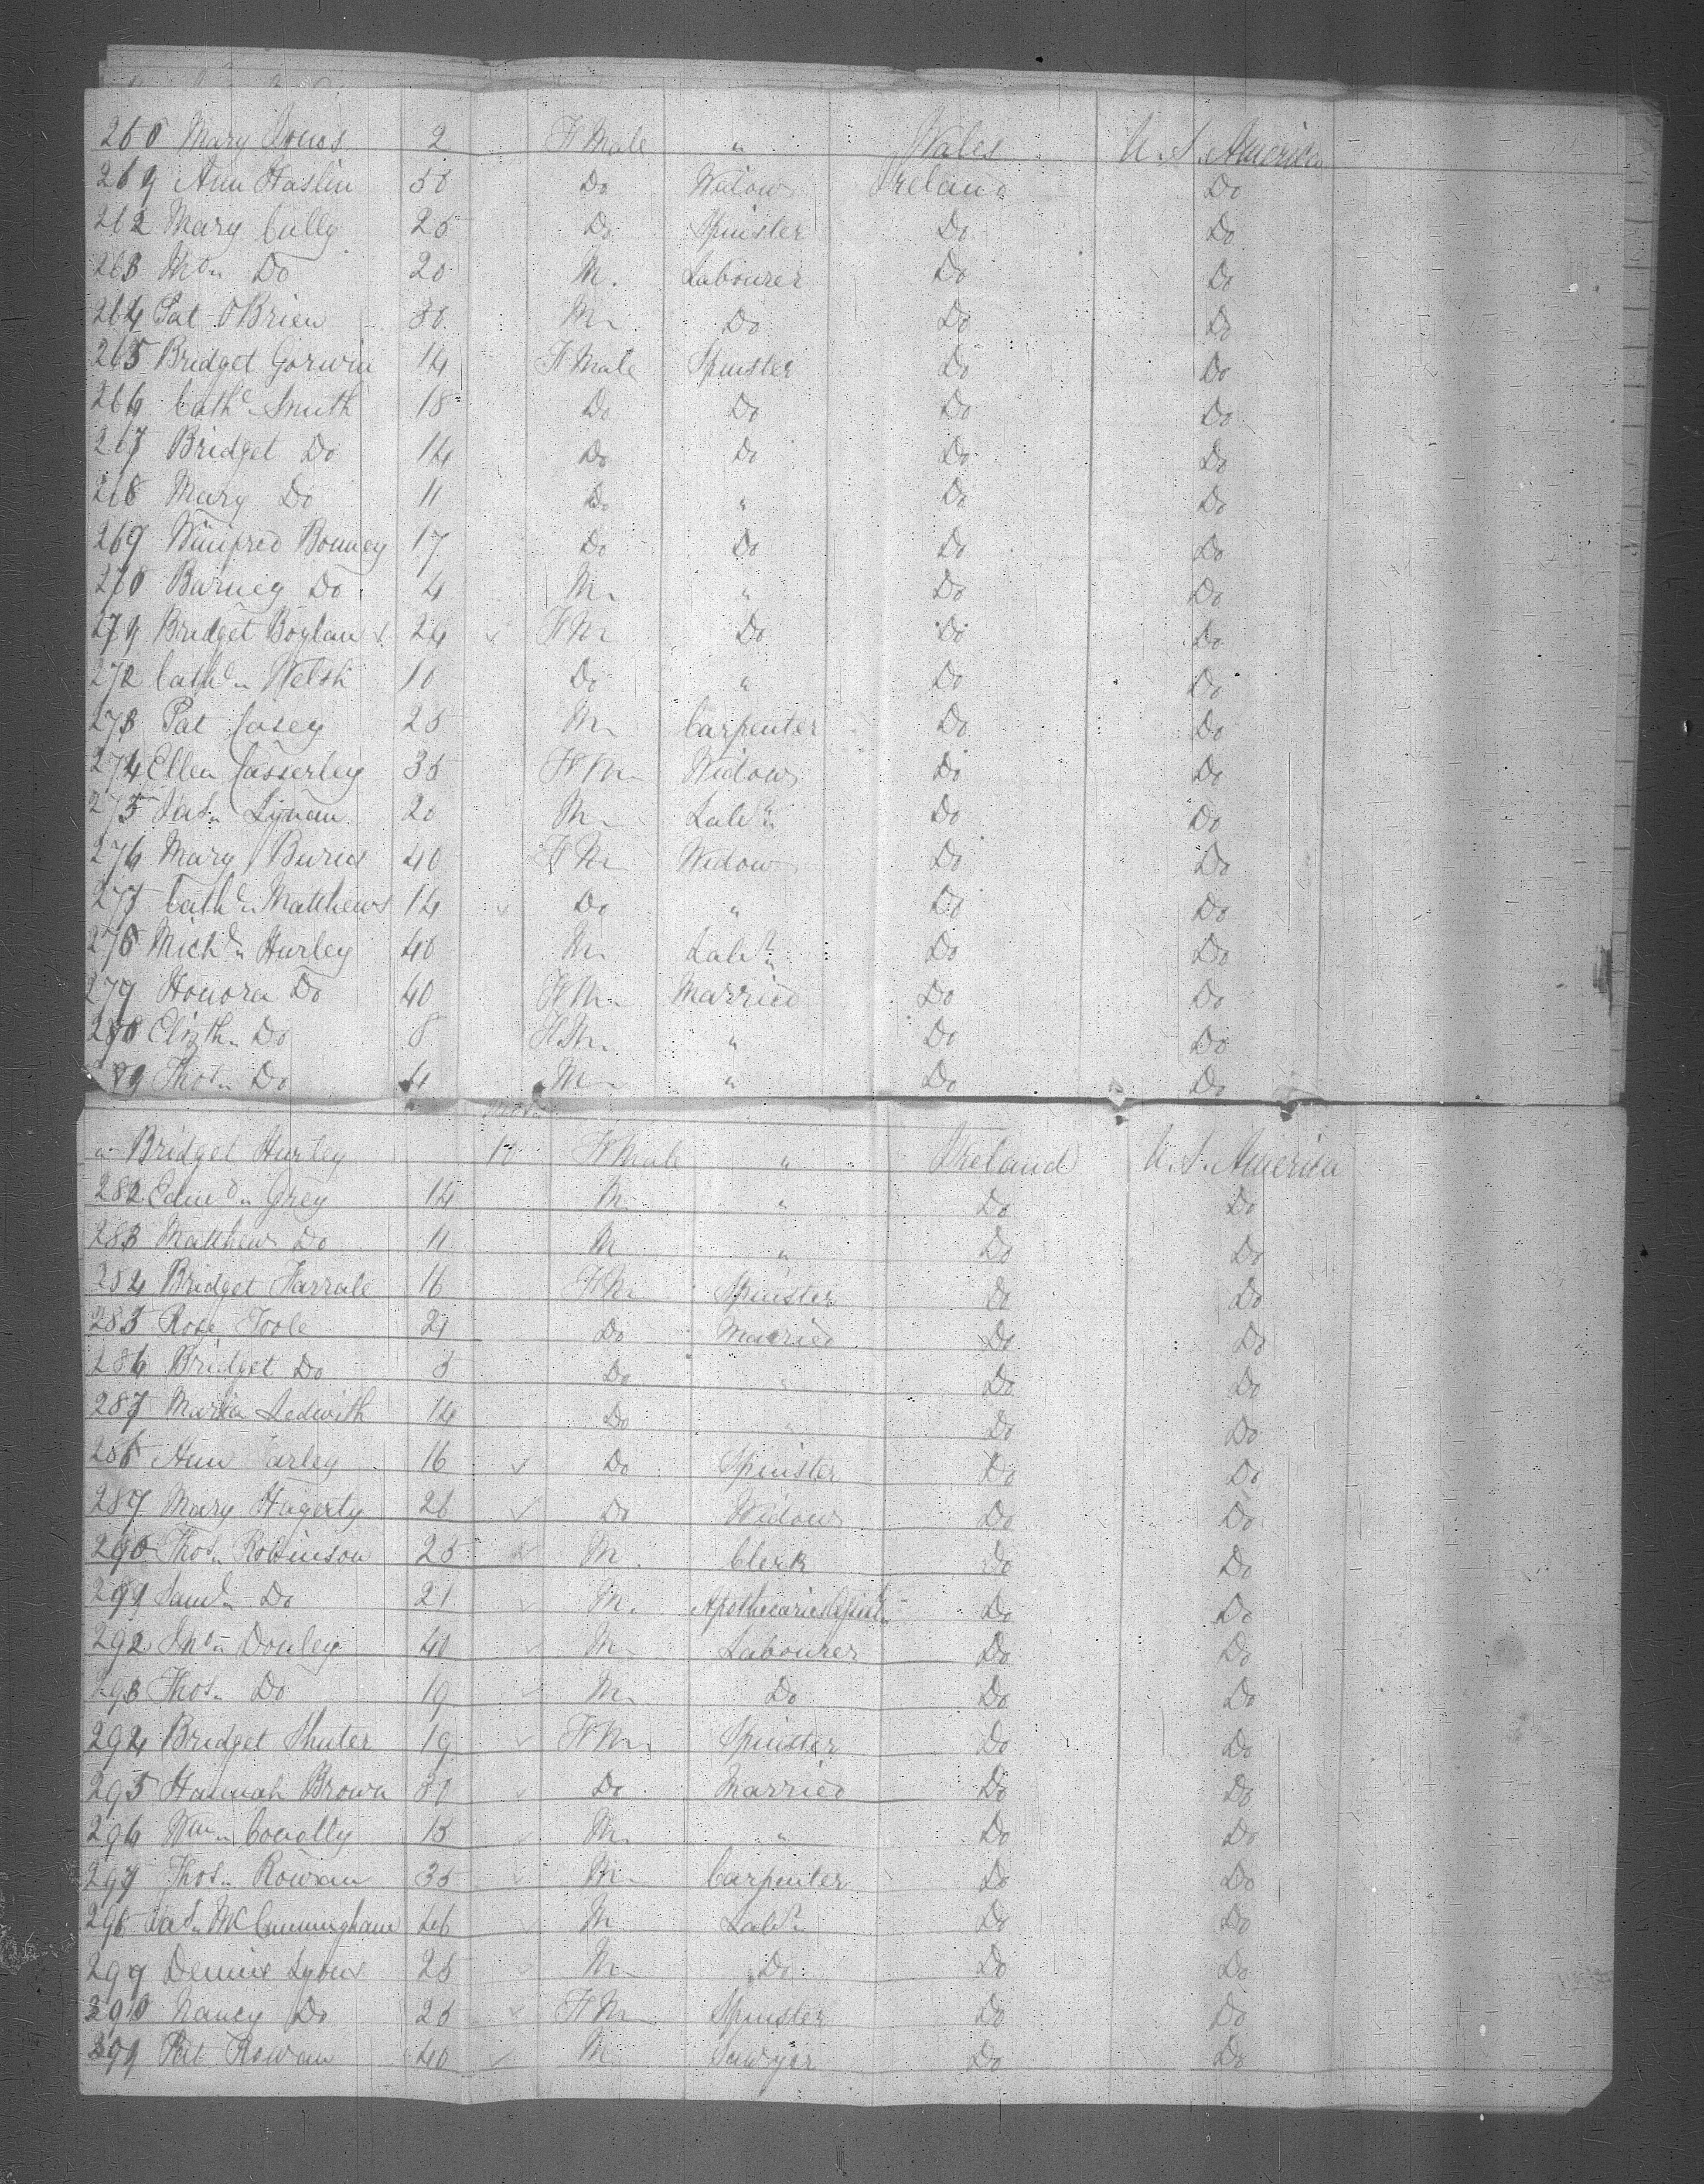 260 Mary Jones 2 F Male " Wales U. S. America
269 Ann Haslin 50 Do Widow Ireland Do
262 Mary Cully 25 Do Spinster Do Do
263 Jno" Do 20 M. Labourer Do Do
264 Pat OBrien 30 M" Do Do Do
265 Bridget Gorwin 14 F Male Spinster Do Do
266 Cathe" Smith 18 Do Do Do Do
267 Bridget Do 14 Do Do Do Do
268 Mary Do 11 Do " Do Do
269 Winifred Bonney 17 Do Do Do Do
270 Barney Do 4 M" " Do Do
279 Bridget Boylan 24 F M" Do Do Do
272 Cathe" Welsh 10 Do " Do Do
273 Pat Casey 25 M" Carpenter Do Do
274 Ellen Casserley 35 F M" Widow Do Do
275 Jas" Lynam 20 M" Labr" Do Do
276 Mary Burns 40 F M" Widow Do Do
277 Cathe" Matthews 14 Do " Do Do
278 Michl" Hurley 40 M" Labr" Do Do
279 Honora Do 40 F M" Married Do Do
280 Elizth" Do 8 F M" " Do Do
Thos" Do 4 M" " Do Do
mos"
" Bridget Hurley 10 F Male " Ireland U. S. America
282 Edmd" Grey 14 M " Do Do
283 Matthew Do 11 M " Do Do
284 Bridget Farrale 16 F M" Spinster Do Do
285 Rose Toole 21 Do Married Do Do
286 Bridget Do 3 Do " Do Do
287 Maria Ledwith 14 Do " Do Do
288 Ann Farley 16 Do Spinster Do Do
289 Mary Hagerty 26 Do Widow Do Do
290 Thos" Robinson 25 M. Clerk Do Do
299 Saml" Do 21 M. Apothecaries Do Do
292 Jno" Donley 40 M" Labourer Do Do
293 Thos" Do 19 M" Do Do Do
294 Bridget Shuter 19 F M" Spinster Do Do
295 Hannah Brown 30 Do Married Do Do
296 Wm" Conolly 13 M" " Do Do
297 Thos" Rowan 35 M" Carpenter Do Do
298 Jas" McCunningham 46 M Labr" Do Do
299 Dennis Lyons 25 M" Do Do Do
390 Nancy Do 25 F M" Spinster Do Do
399 Pat Rowan 40 M" Sawyer Do Do